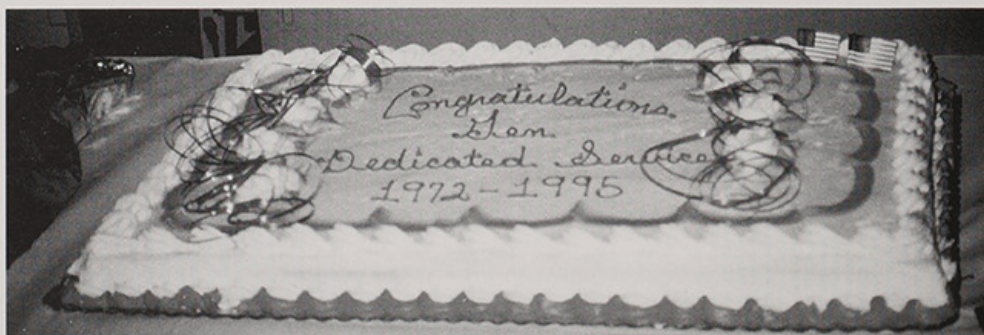 Congratulations
Gen
Dedicated Service
1972-1995